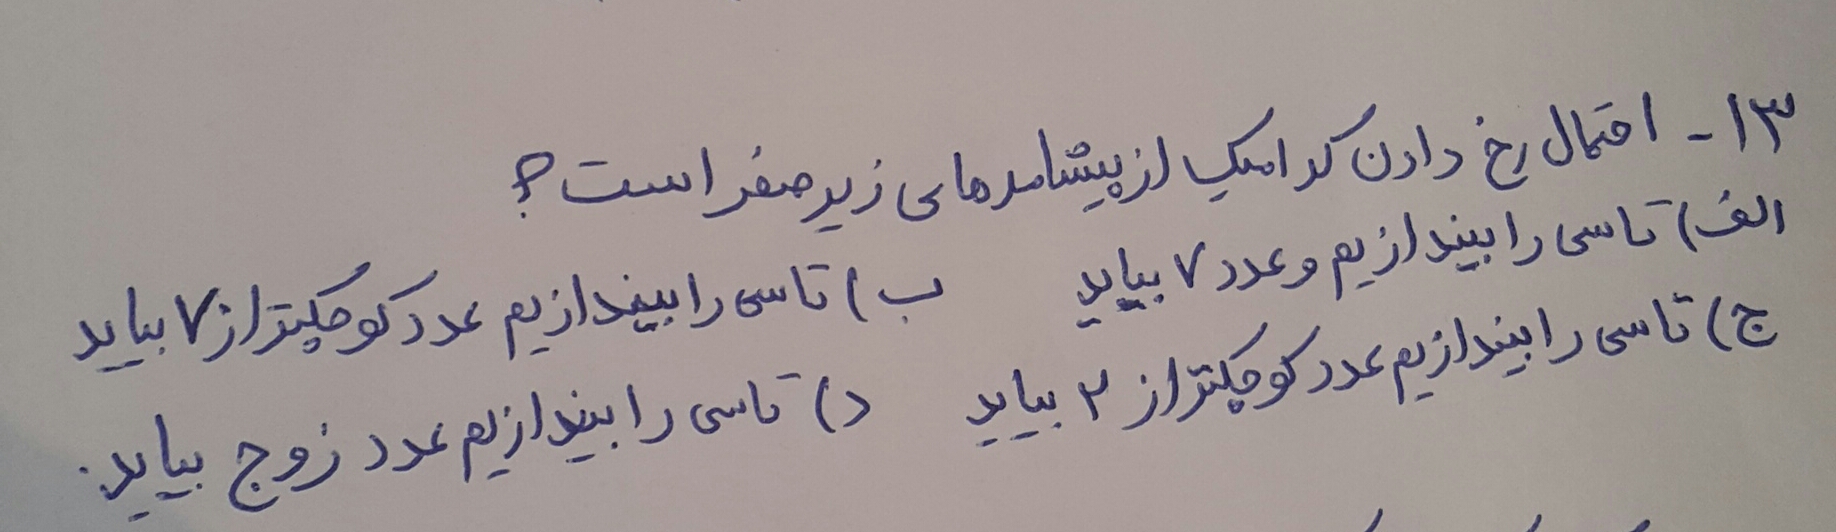 ۱۳- احتمال رخ دادن کدامیک از پیشامدهای زیر صفر است؟
الف) تاسی را بیندازیم و عدد ۷ بیاید ب) تاسی را بیندازیم عدد کوچکتر از ۷ بیاید
ج) تاسی را بیندازیم عدد کوچکتر از ۲ بیاید د) تاسی را بیندازیم عدد زوج بیاید.